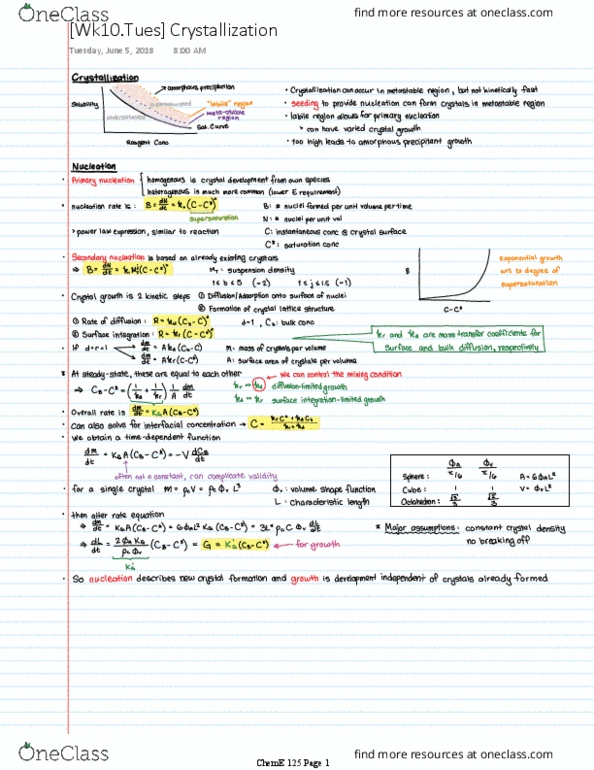 OneClass
find more resources at oneclass.com
[Wk10.Tues] Crystallization
Tuesday, June 5, 2018 8:00 AM
Crystallization
Solubility
amorphous precipitation
supersaturated
"labile" region
meta-stable region
undersaturated
Sat. Curve
Reagent Conc
• Crystallization can occur in metastable region, but not kinetically fast
• seeding to provide nucleation can form crystals in metastable region
• labile region allows for primary nucleation
> can have varied crystal growth
• too high leads to amorphous precipitant growth
Nucleation
• Primary nucleation { homogenous is crystal development from own species
heterogenous is much more common (lower E requirement)
• nucleation rate is: B = dN/dt = kₙ(C-C*)ⁿ
supersaturation
B: # nuclei formed per unit volume per time
N: # nuclei per unit vol
> power law expression, similar to reaction
C: instantaneous conc @ crystal surface
C*: saturation conc
• Secondary nucleation is based on already existing crystals
⇒ B = dN/dt = k₁ (C-C*)
: suspension density
1 ≤ b ≤ 5 (~2) 1 ≤ j ≤ 1.5 (~1)
B
C-C*
Exponential growth
wrt to degree of
supersaturation
• Crystal growth is 2 kinetic steps ① Diffusion/Adsorption onto surface of nuclei
② Formation of crystal lattice structure
① Rate of diffusion: R = k_d(C_B-C)ᵈ d~1, C_B: bulk conc
② Surface integration: R = k_r(C-C*)ʳ
k_r and k_d are mass transfer coefficients for
surface and bulk diffusion, respectively
• If d=r=1 → dm/dt = A k_d(C_B-C) M: mass of crystals per volume
→ dm/dt = A k_r(C-C*) A: surface area of crystals per volume
* At steady-state, these are equal to each other
we can control the mixing condition
⇒ C_B-C* = (1/k_d + 1/k_r) 1/A dm/dt
diffusion-limited growth
surface integration-limited growth
• Overall rate is dm/dt = K_G A (C_B-C*)
• Can also solve for interfacial concentration → C = (k_r C* + k_d C_B)/(k_r + k_d)
• We obtain a time-dependent function
dm/dt = K_G A (C_B-C*) = -V dC_B/dt
often not a constant, can complicate validity
• for a single crystal m = ρ_c V = ρ_c Φ_v L³
Φ_v: volume shape function
L: characteristic length
Φ_A Φ_V
Sphere: π/6 π/6 A = 6Φ_A L²
Cube: 1 1 V = Φ_V L³
Octahedron: √3/3 √2/3
• then alter rate equation
⇒ dm/dt = K_G A (C_B-C*) = 6Φ_A L² K_G (C_B-C*) = 3L² ρ_c Φ_v dL/dt
⇒ dL/dt = 2Φ_A K_G/ρ_c Φ_v (C_B-C*) = G = K'_G (C_B-C*) ← for growth
K'_G
* Major assumptions: constant crystal density
no breaking off
• So nucleation describes new crystal formation and growth is development independent of crystals already formed
OneClass
find more resources at oneclass.com
ChemE 125 Page 1